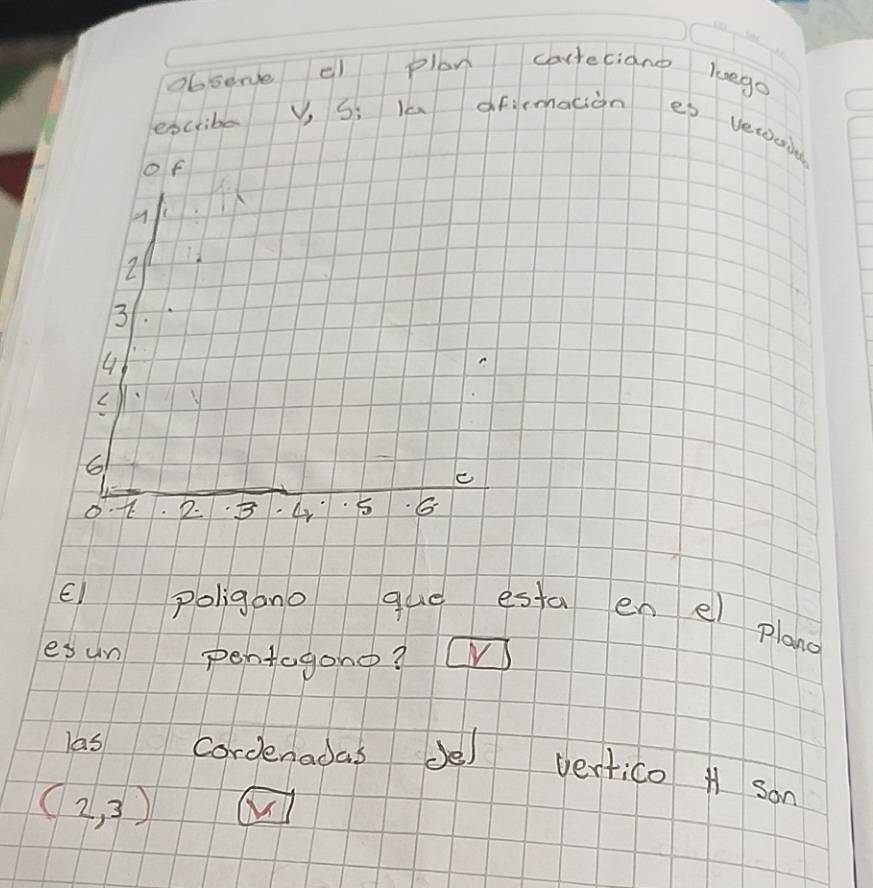 observe el plan carteciano luego
escriba V, Si la afirmación es
o f
1
2
3
4
5
6
c
0 1 2 3 4 5 6
El poligono que esta en el plano
es un pentagono? V
las cordenadas del vertico H son
(2,3) V